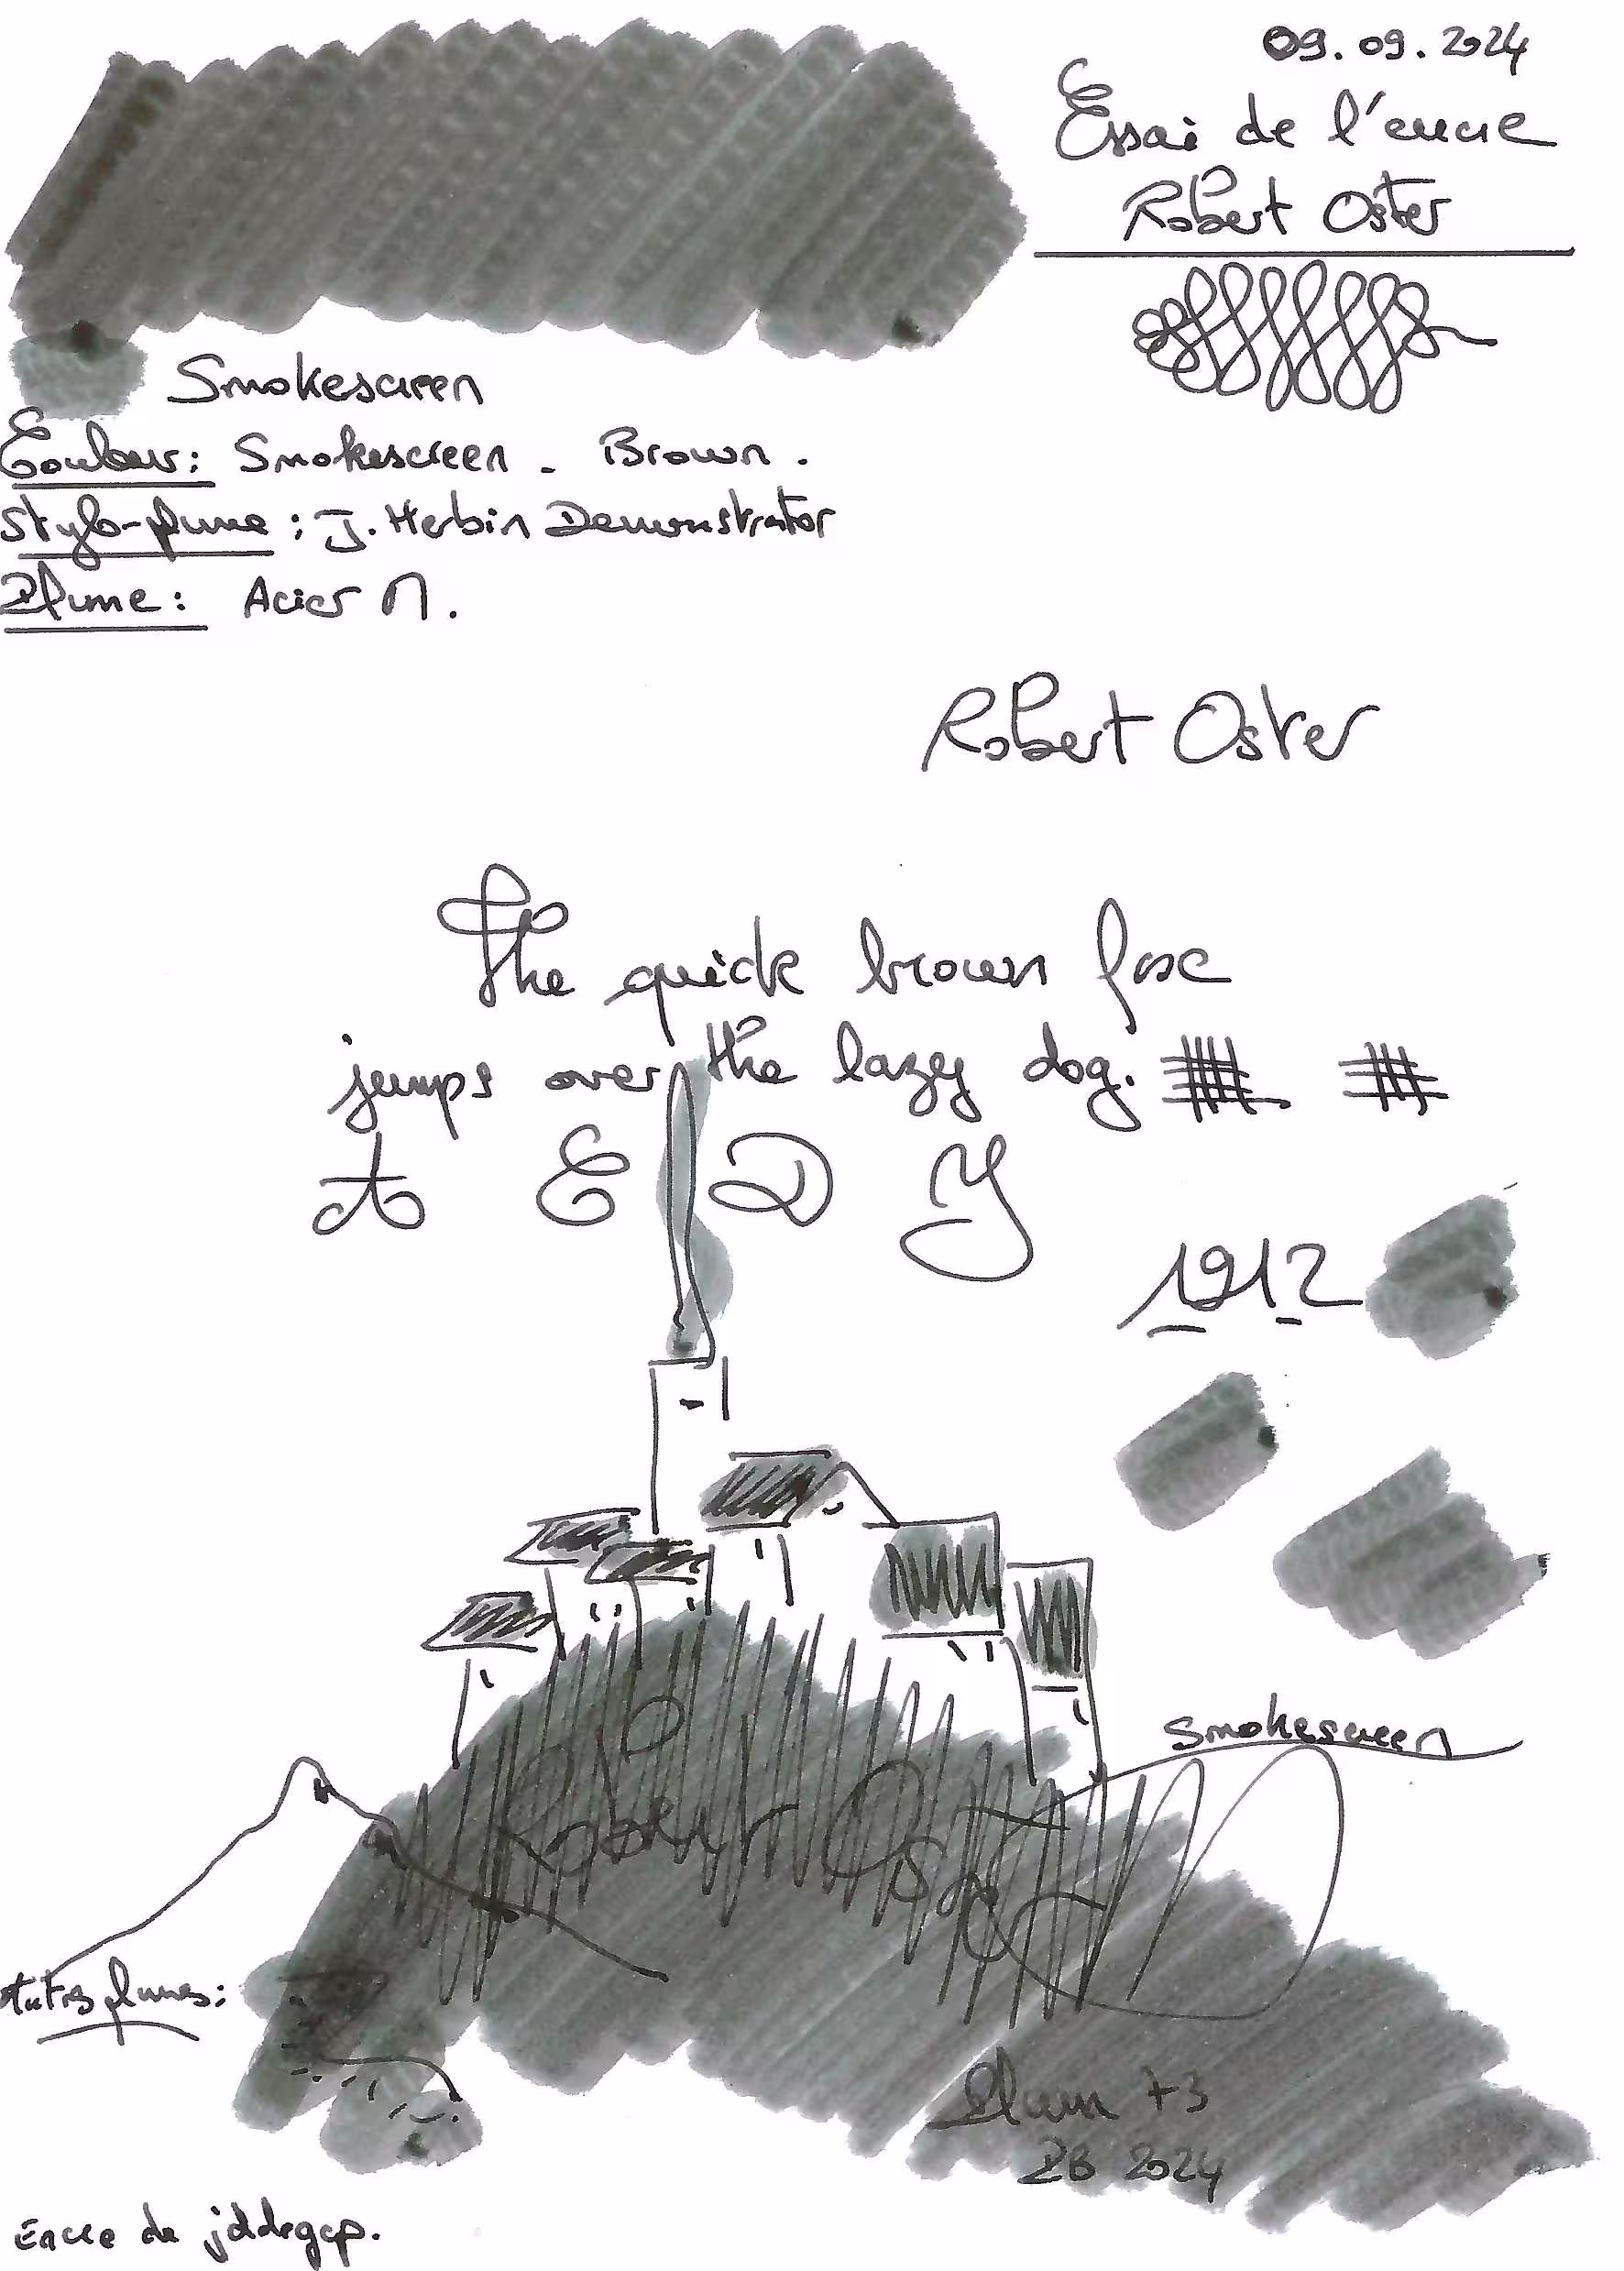 09.09.2024
Essai de l'encre
Robert Oster
Smokescreen
Couleur: Smokescreen - Brown.
Stylo-plume: J. Herbin Demonstrator
Plume: Acier M.
Robert Oster
The quick brown fox
jumps over the lazy dog.
A E D Y
1912
Smokescreen
Robert Oster
Autres plumes:
Plum 73
2B 2024
Encre de jddegap.